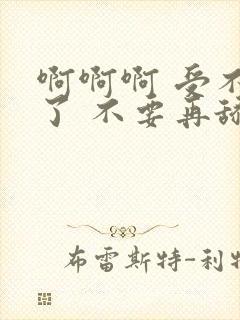 啊啊啊 受不
了 不要再舔
布雷斯特-利特